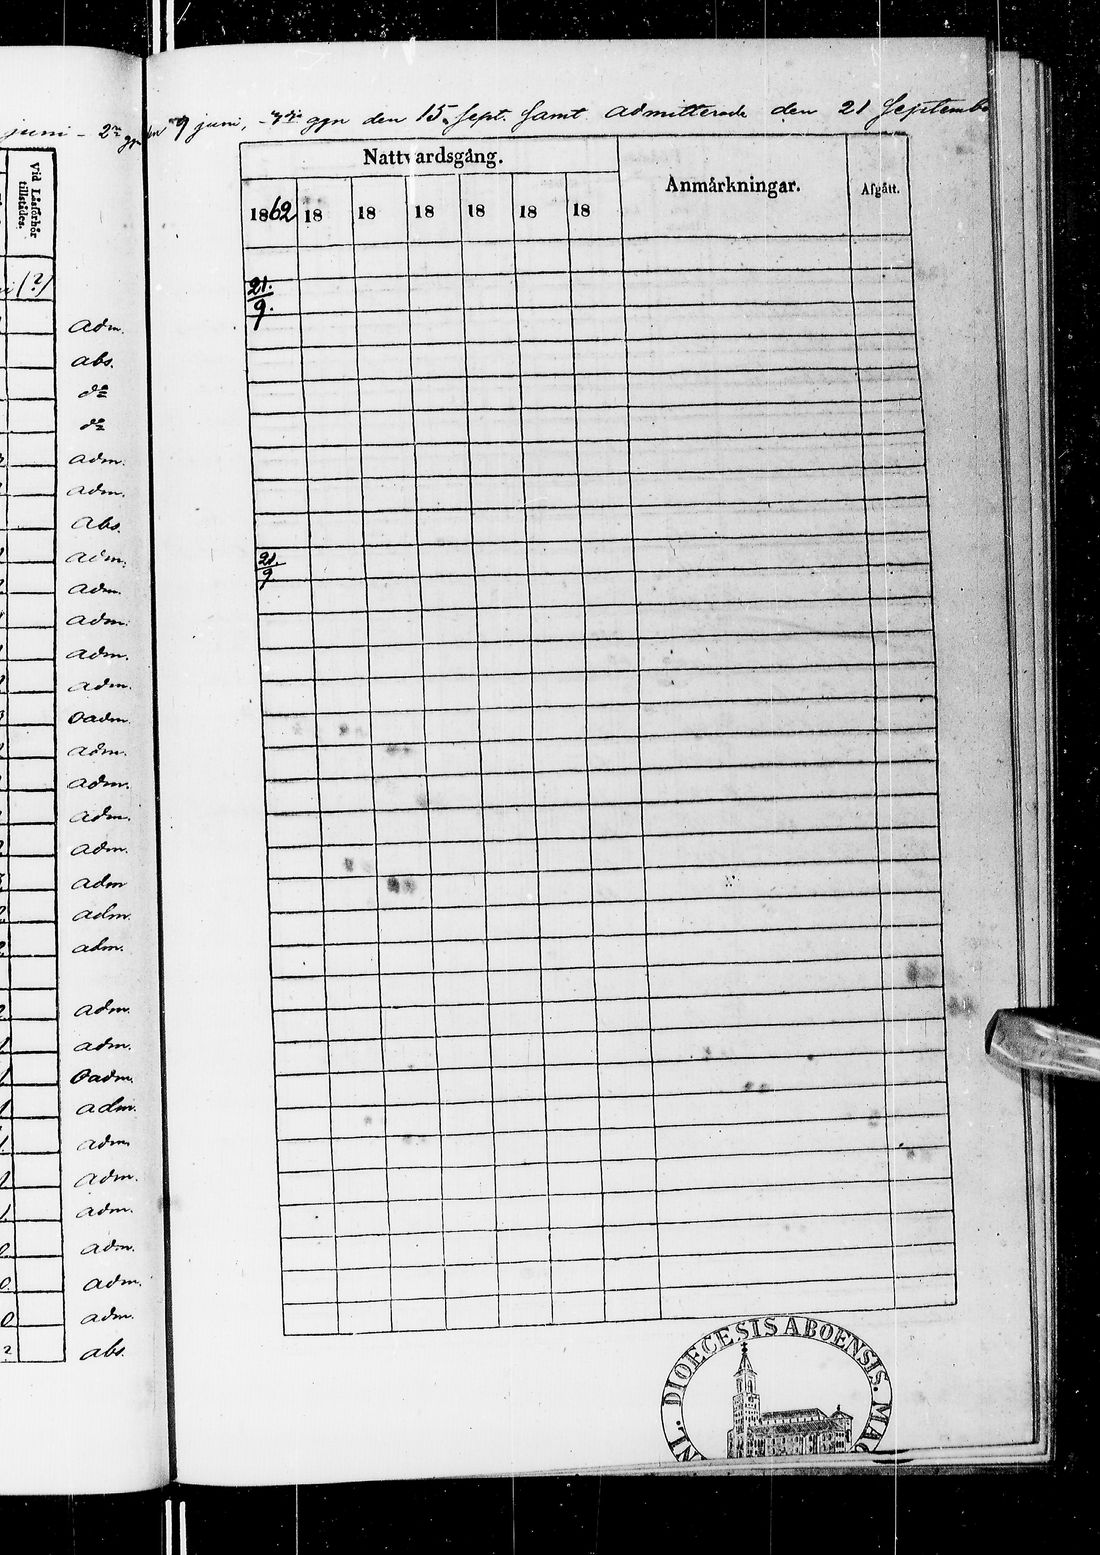 juni - 2ra ggn den 9 juni, - 3dje ggn den 15 Sept. Samt admitterade den 21 Septembe
Vid Läsförhör
tillstädes.
(?)
adm.
abs.
do
do
adm.
adm.
abs.
adm.
adm.
adm.
adm.
adm.
Oadm.
adm.
adm.
adm.
adm.
adm
adm.
adm.
adm.
adm.
Oadm.
adm.
adm.
adm.
adm.
adm.
adm.
adm.
abs.
Nattvardsgång.
Anmärkningar.
Afgått.
1862 18 18 18 18 18 18
21.
9.
21.
9
DIOECESIS ABOENSIS. MAG